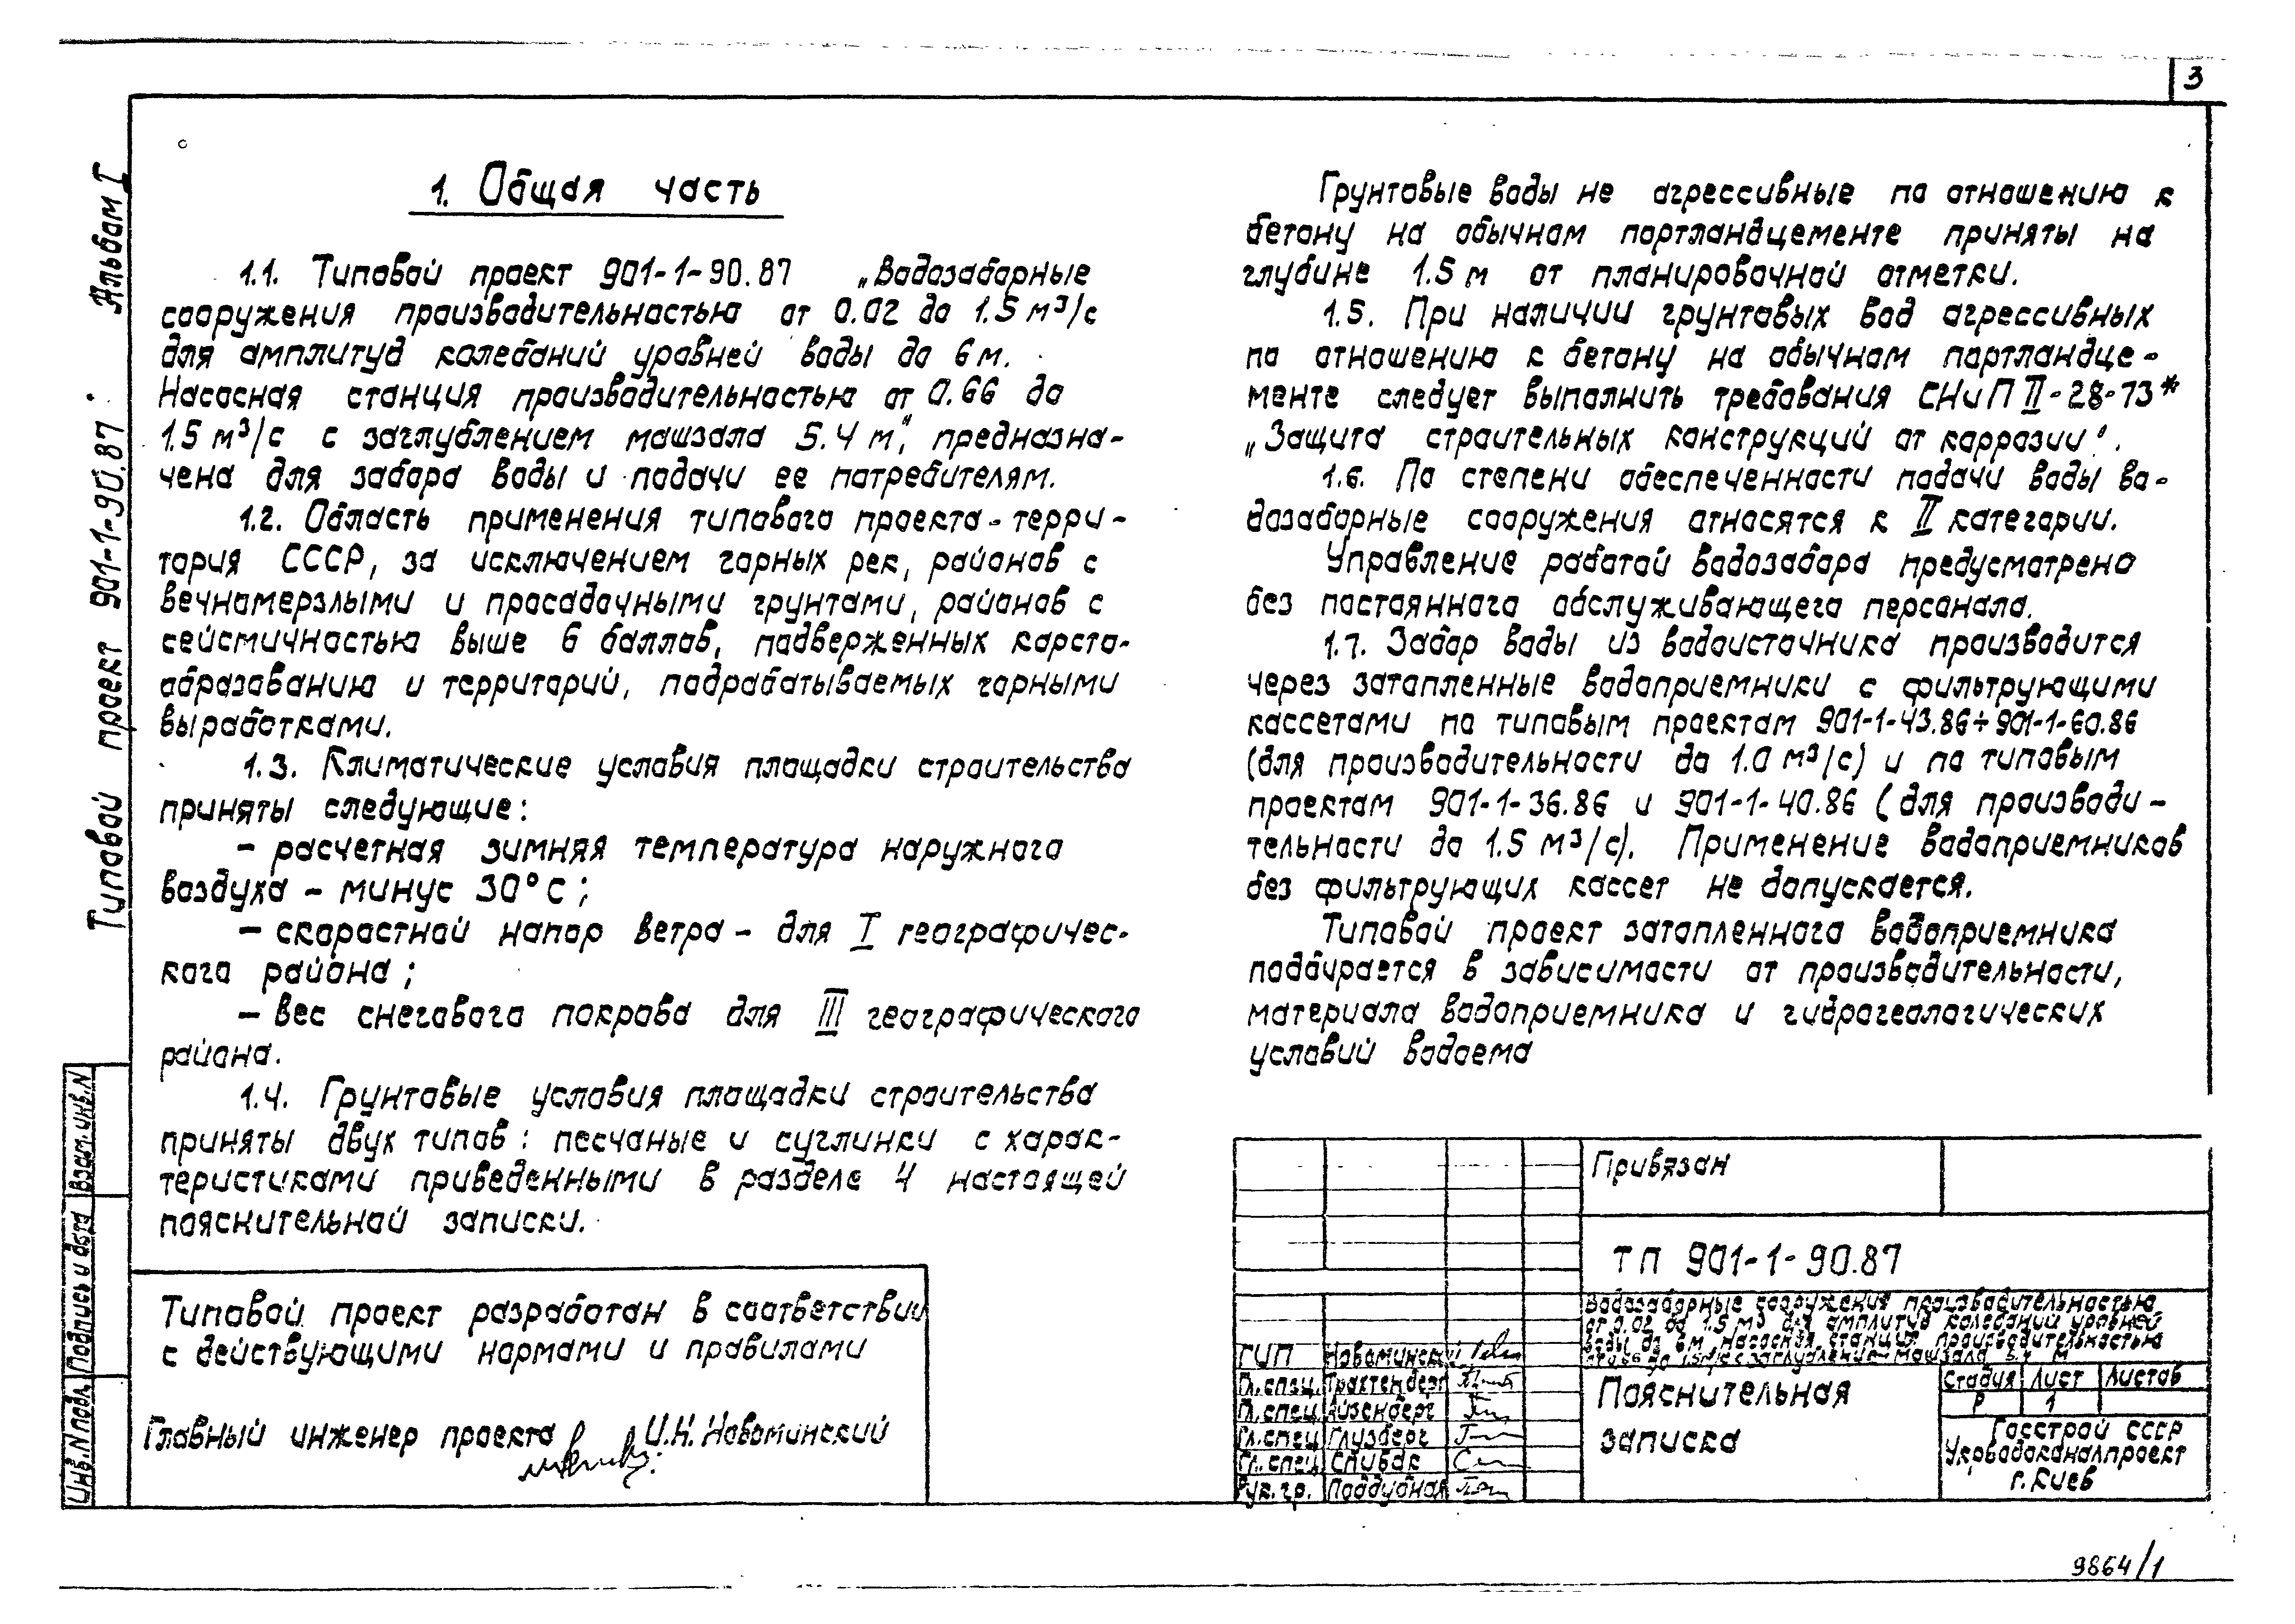 3
Типовой проект 901-1-90.87. Альбом I
1. Общая часть
1.1. Типовой проект 901-1-90.87 „Водозаборные
сооружения производительностью от 0.02 до 1.5 м³/с
для амплитуд колебаний уровней воды до 6 м.
Насосная станция производительностью от 0.66 до
1.5 м³/с с заглублением машзала 5.4 м", предназна-
чена для забора воды и подачи ее потребителям.
1.2. Область применения типового проекта - терри-
тория СССР, за исключением горных рек, районов с
вечномерзлыми и просадочными грунтами, районов с
сейсмичностью выше 6 баллов, подверженных карсто-
образованию и территорий, подрабатываемых горными
выработками.
1.3. Климатические условия площадки строительства
приняты следующие:
- расчетная зимняя температура наружного
воздуха - минус 30°С;
- скоростной напор ветра - для I географичес-
кого района;
- вес снегового покрова для III географического
района.
1.4. Грунтовые условия площадки строительства
приняты двух типов: песчаные и суглинки с харак-
теристиками приведенными в разделе 4 настоящей
пояснительной записки.
Типовой проект разработан в соответствии
с действующими нормами и правилами
Главный инженер проекта И.Н. Новоминский
Грунтовые воды не агрессивные по отношению к
бетону на обычном портландцементе приняты на
глубине 1.5 м от планировочной отметки.
1.5. При наличии грунтовых вод агрессивных
по отношению к бетону на обычном портландце-
менте следует выполнить требования СНиП II-28-73*
„Защита строительных конструкций от коррозии".
1.6. По степени обеспеченности подачи воды во-
дозаборные сооружения относятся к II категории.
Управление работой водозабора предусмотрено
без постоянного обслуживающего персонала.
1.7. Забор воды из водоисточника производится
через затопленные водоприемники с фильтрующими
кассетами по типовым проектам 901-1-43.86÷901-1-60.86
(для производительности до 1.0 м³/с) и по типовым
проектам 901-1-36.86 и 901-1-40.86 (для производи-
тельности до 1.5 м³/с). Применение водоприемников
без фильтрующих кассет не допускается.
Типовой проект затопленного водоприемника
подбирается в зависимости от производительности,
материала водоприемника и гидрогеологических
условий водоема
Привязан
ТП 901-1-90.87
Водозаборные сооружения производительностью
от 0.02 до 1.5 м³ для амплитуд колебаний уровней
воды до 6м. Насосная станция производительностью
от 0.66 до 1.5 м³/с с заглублением машзала 5.4 м
ГИП Новоминский
Гл.спец. Трахтенберг
Гл.спец. Айзенберг
Гл.спец. Глузберг
Гл.спец. Спивак
Рук.гр. Поддубная
Пояснительная
записка
Стадия Лист Листов
Р 1
Госстрой СССР
Укрводоканалпроект
г. Киев
Взам. инв. N
Подпись и дата
Инв. N подл.
9864/1